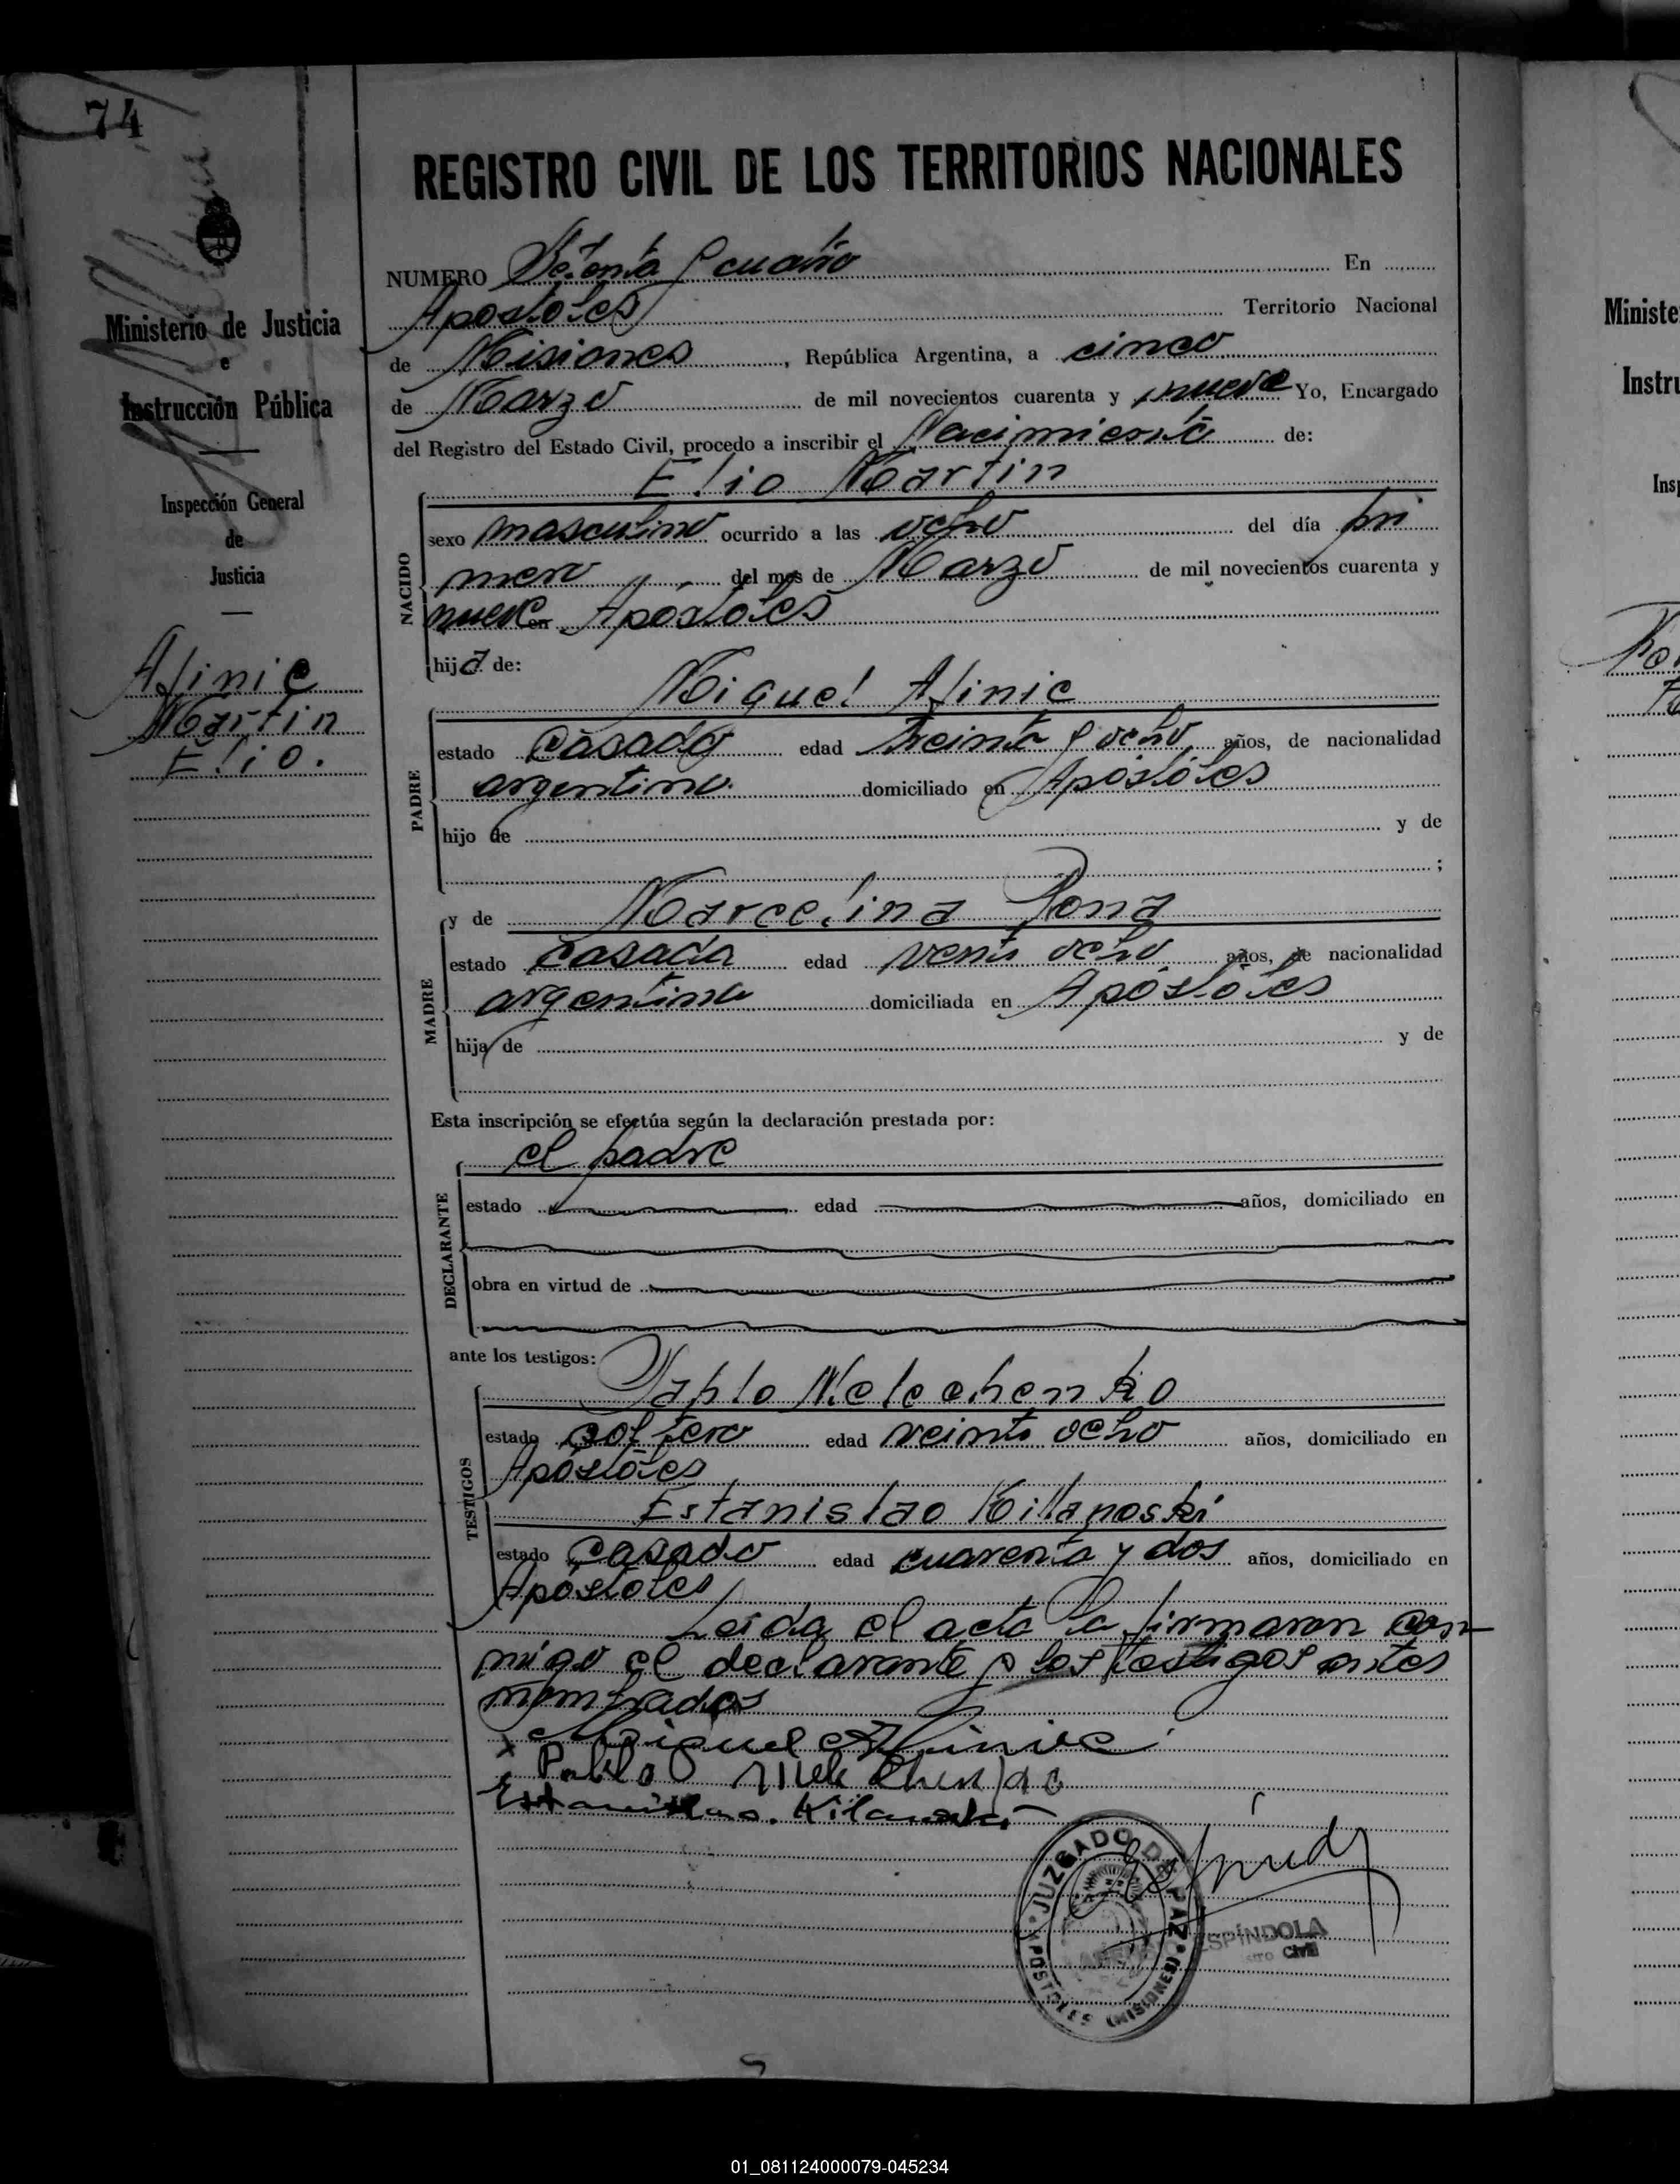 74
REGISTRO CIVIL DE LOS TERRITORIOS NACIONALES
Ministerio de Justicia
e
Instrucción Pública
Inspección General
de
Justicia
Alinic
Martin
Elio.
NUMERO Setenta y cuatro En
Apostoles Territorio Nacional
de Misiones, República Argentina, a cinco
de Marzo de mil novecientos cuarenta y nueve Yo, Encargado
del Registro del Estado Civil, procedo a inscribir el Nacimiento de:
Elio Martin
NACIDO
sexo masculino ocurrido a las ocho del día pri
mero del mes de Marzo de mil novecientos cuarenta y
nueve en Apóstoles
hijo de:
Miguel Alinic
PADRE
estado Casado edad treinta y ocho años, de nacionalidad
argentino. domiciliado en Apóstoles
hijo de y de
;
MADRE
y de Marcelina Rona
estado casada edad venti ocho años, de nacionalidad
argentina domiciliada en Apóstoles
hija de y de
Esta inscripción se efectúa según la declaración prestada por:
el padre
DECLARANTE
estado edad años, domiciliado en
obra en virtud de
ante los testigos:
Pablo Melechenko
TESTIGOS
estado soltero edad veinti ocho años, domiciliado en
Apóstoles
Estanislao Killanoski
estado Casado edad cuarenta y dos años, domiciliado en
Apóstoles
Leida el acta la firmaron con
migo el declarante y los testigos antes
nombrados
Miguel Alinic
Pablo Melechenko
Estanislao. Kilanoski
JUZGADO DE PAZ
APOSTOLES (MISIONES)
ESPÍNDOLA
Civil
Ministe
Instru
Insp
01_081124000079-045234